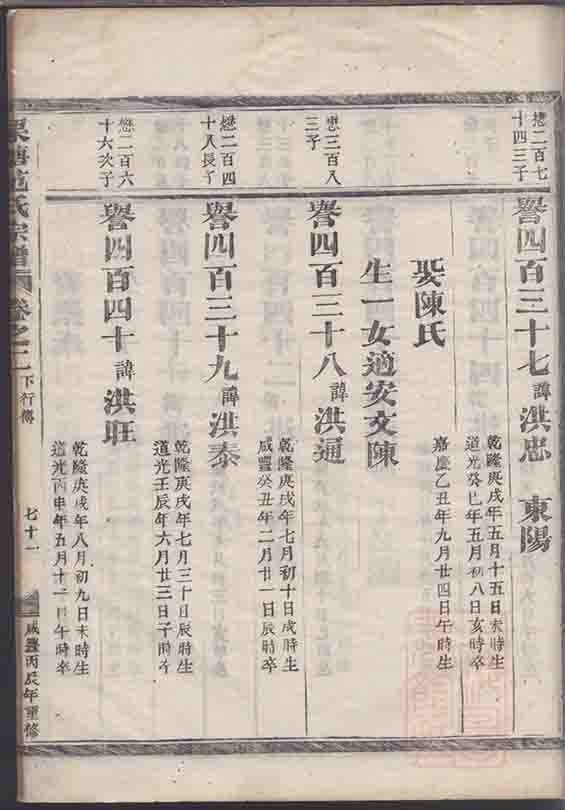 懋二百七
十四三子
譽四百三十七 諱 洪忠 東陽
乾隆庚戌年五月十五日未時生
道光癸巳年五月初八日亥時卒
娶陳氏
嘉慶乙丑年九月廿四日午時卒
生一女適安文陳
懋三百八
三子
譽四百三十八 諱 洪通
乾隆庚戌年七月初十日戌時生
咸豐癸丑年二月廿一日辰時卒
懋二百四
十八長子
譽四百三十九 諱 洪泰
乾隆庚戌年七月三十日辰時生
道光壬辰年六月廿三日子時卒
懋二百六
十六次子
譽四百四十 諱 洪旺
乾隆庚戌年八月初九日未時生
道光丙申年五月十一日午時卒
范氏宗譜 卷之二 下行傳
七十一
咸豐丙辰年重修